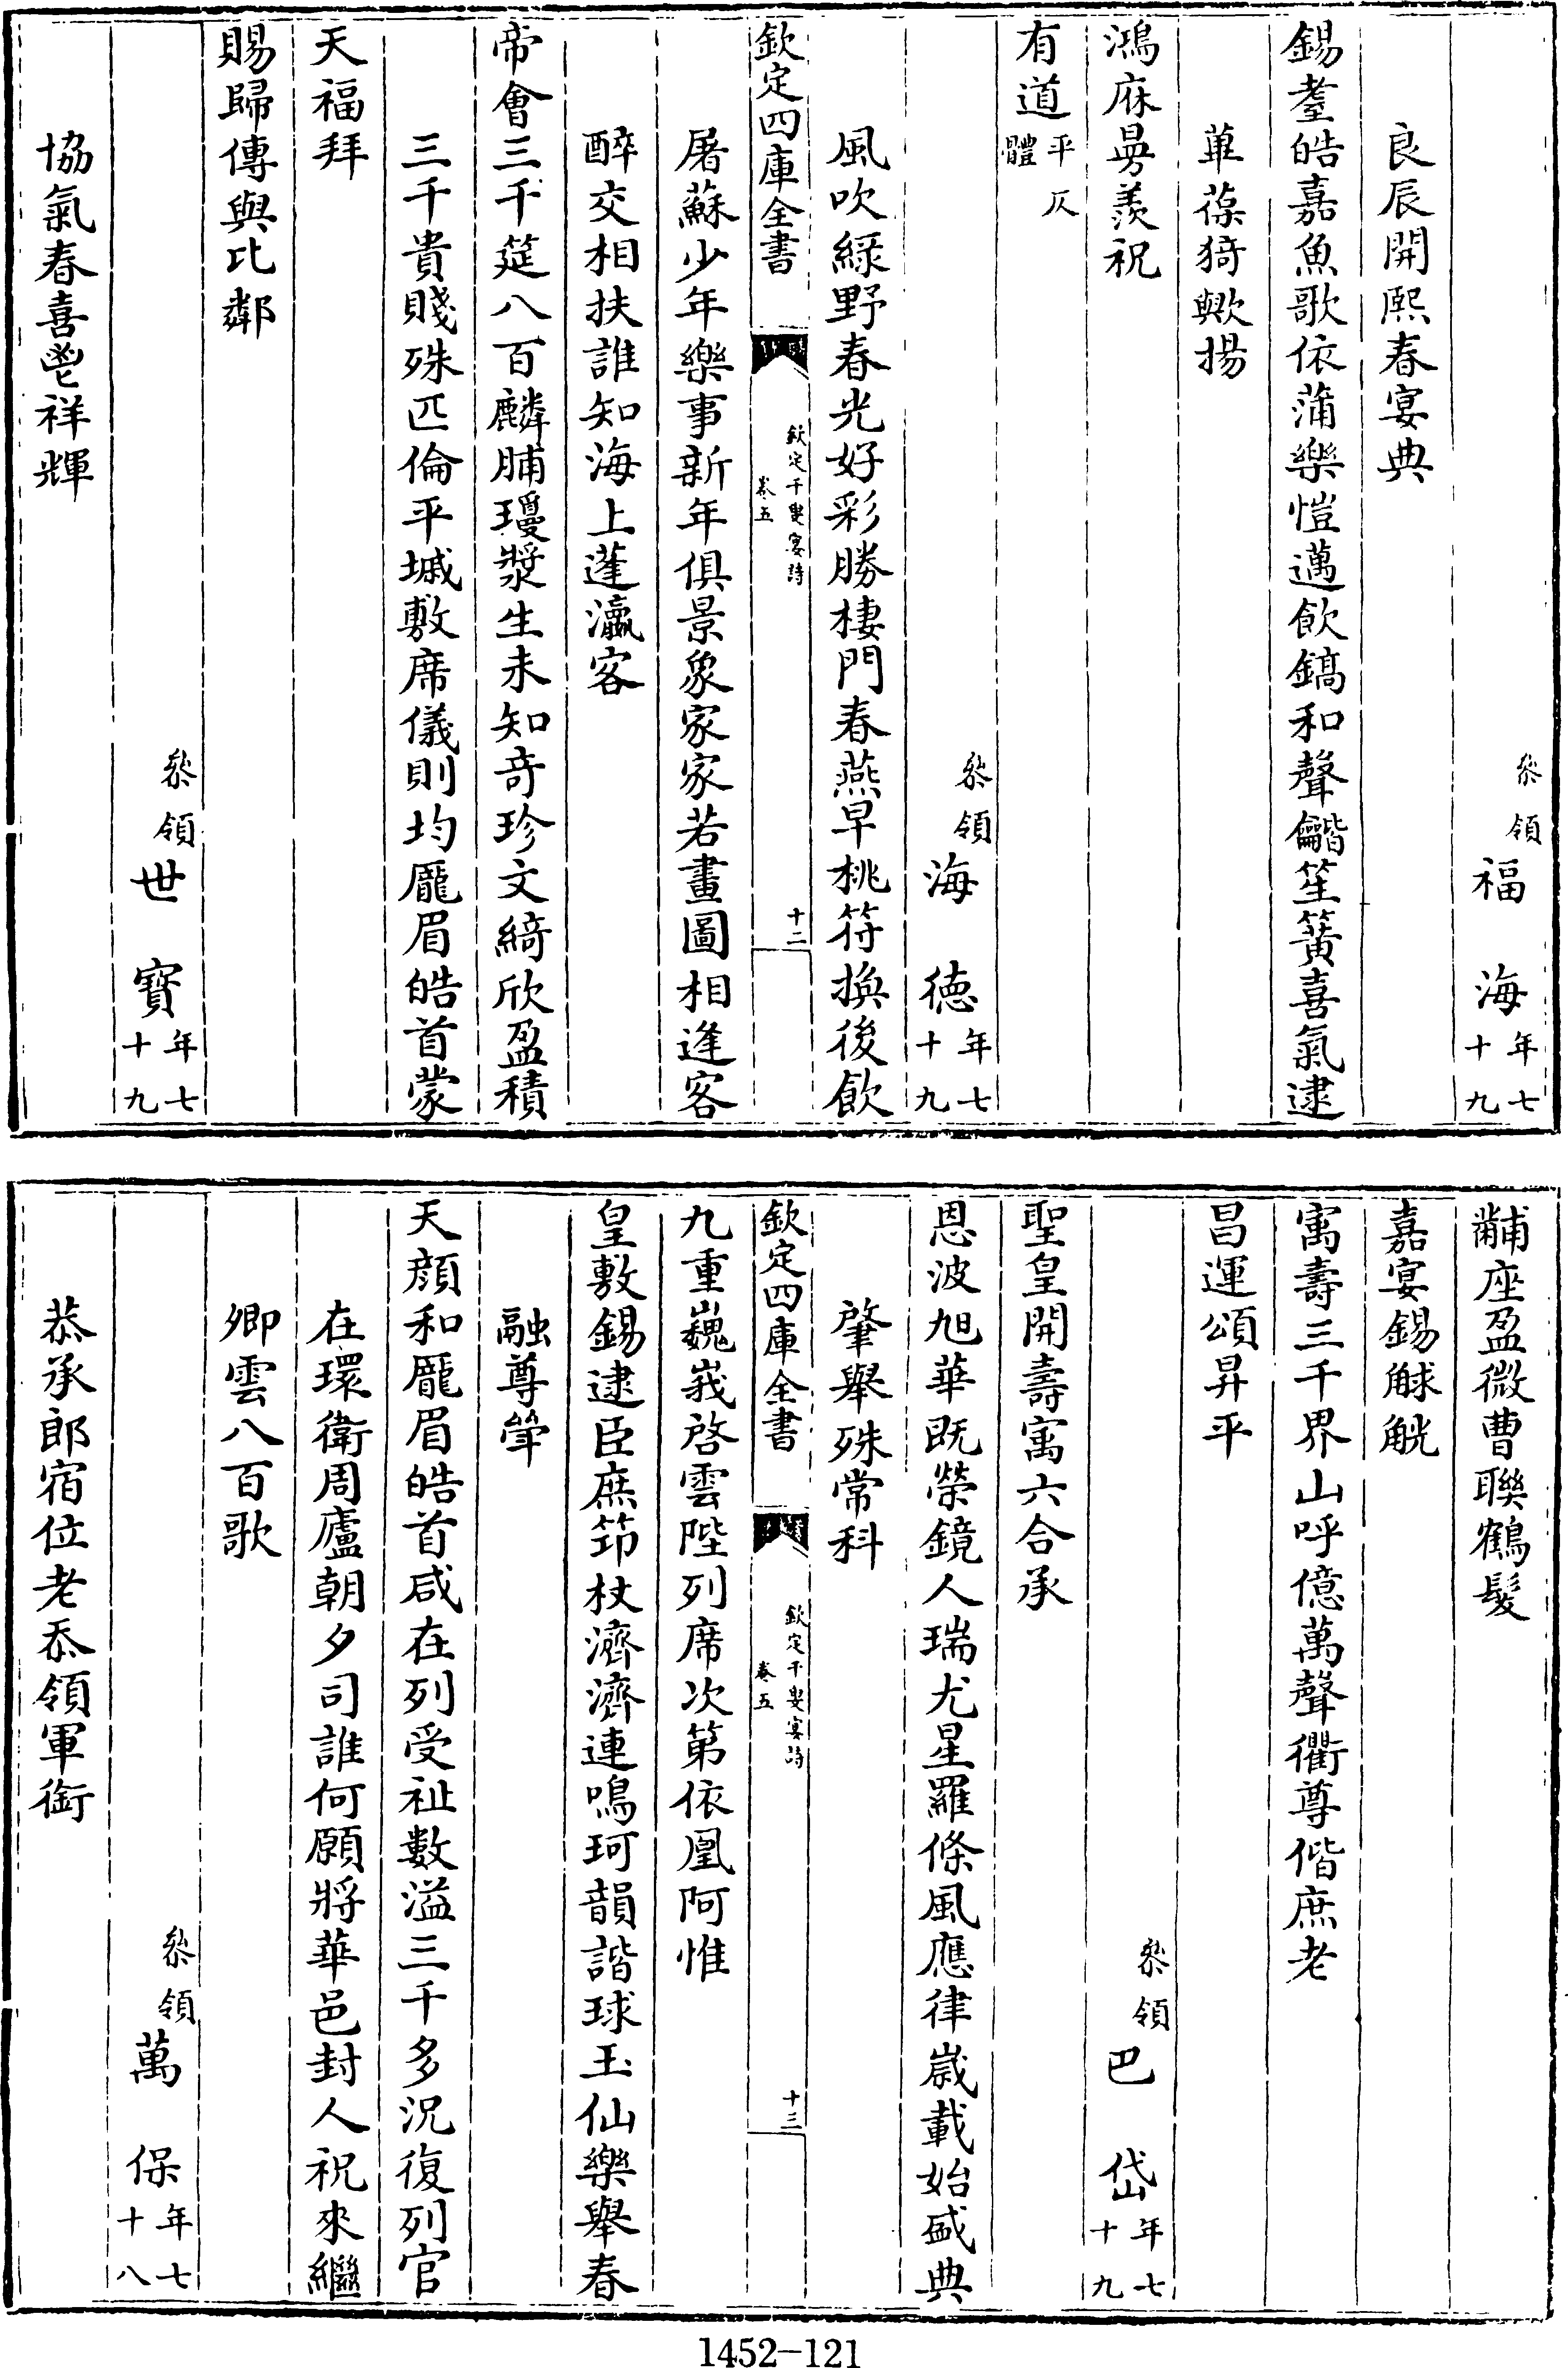 叅領福海年七十九
良辰開熙春宴典
錫耋皓嘉魚歌依蒲樂愷邁飲鎬和聲龤笙簧喜氣逮
葦葆猗歟揚
鴻庥曷羨祝
有道平仄體
叅領海徳年七十九
風吹緑野春光好彩勝棲門春燕早桃符換後飲
欽定四庫全書
欽定千叟宴詩
卷五
十二
屠蘇少年樂事新年俱景象家家若畫圖相逢客
醉交相扶誰知海上蓬瀛客
帝會三千筵八百麟脯瓊漿生未知竒珍文綺欣盈積
三千貴賤殊匹倫平墄敷席儀則均龎眉皓首蒙
天福拜
賜歸傳與比鄰
叅領世寳年七十九
協氣春喜鬯祥輝
黼座盈微曹聯鶴髮
嘉宴錫觩觥
寓壽三千界山呼億萬聲衢尊偕庶老
昌運頌昇平
叅領巴岱年七十九
聖皇開壽寓六合承
恩波旭華既榮鏡人瑞尤星羅條風應律嵗載始盛典
肇舉殊常科
欽定四庫全書
欽定千叟宴詩
卷五
十三
九重巍峩啓雲陛列席次第依凰阿惟
皇敷錫逮臣庶笻杖濟濟連鳴珂韻諧球玉仙樂舉春
融尊斝
天顔和龎眉皓首咸在列受祉數溢三千多況復列官
在環衛周廬朝夕司誰何願將華邑封人祝來繼
卿雲八百歌
叅領萬保年七十八
恭承郎宿位老忝領軍銜
1452-121